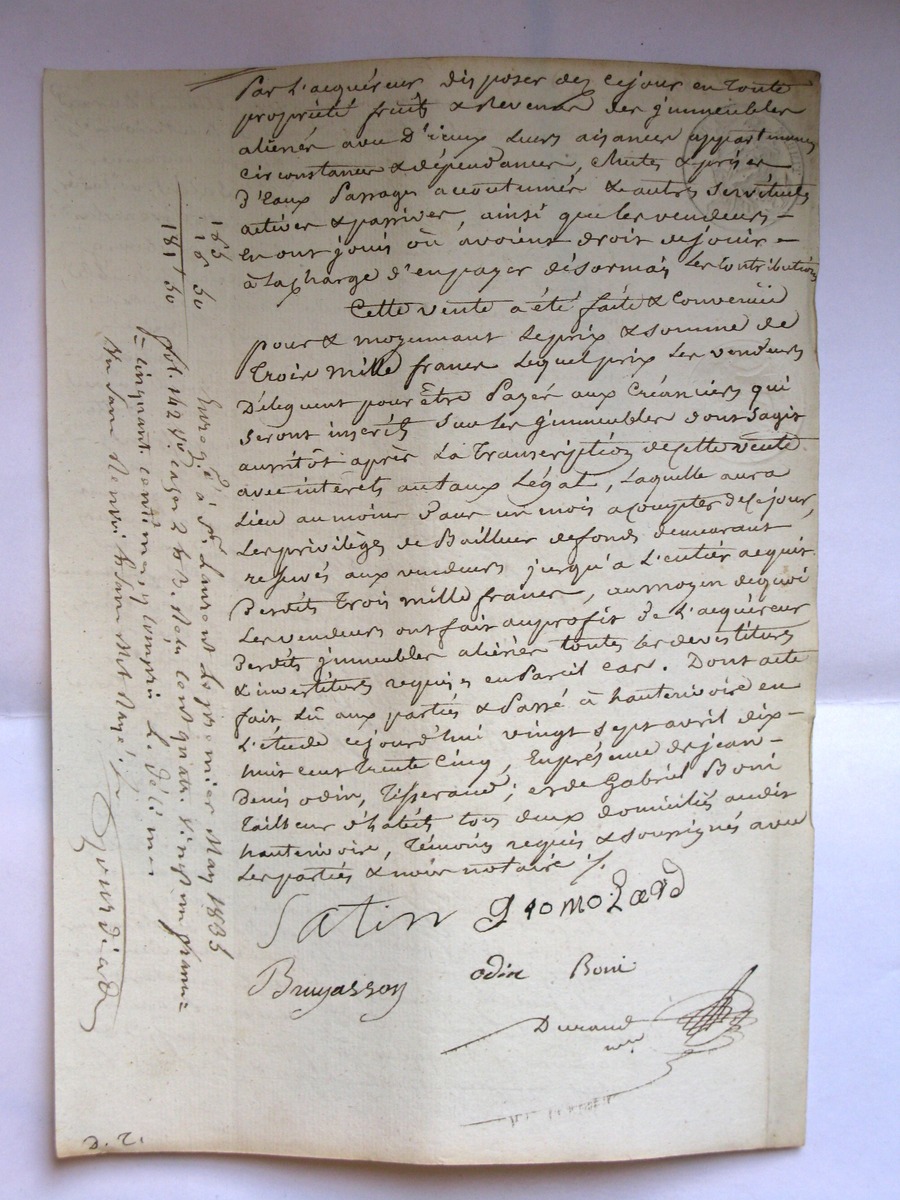 Par L'acquéreur disposer dez cejour en toute
propriété fruits & Revenus des jmmeubles
aliénés avec D'iceux Leurs aisances appartenances
Circonstances & dépendances, chutes & prises
D'Eaux Passages accoutumés & autres Servitudes
actives & passives, ainsi que les vendeurs –
En ont jouis où avoient droit de jouir –
à la charge d'en payer désormais Les Contributions
Cette vente a été faite & Convenuë
pour & moyennant Le prix & somme de
Trois Mille francs Lequel prix Les vendeurs
Délèguent pour être Payés aux Créanciers qui
seront inscrits Sur Les jmmeubles dont s'agit
aussitôt après La Transcription de cette vente
avec intérets au taux Légal, Laquelle aura
Lieu au moins dans un mois a compter de ce jour,
Les privilèges de Bailleur de fonds demeurant
réservés aux vendeurs jusqu'à L'entier acquit
Desdits Trois Mille francs, au moyen de quoi
Les vendeurs ont fait au profit De L'acquéreur
Desdits jmmeubles aliénés toutes Les devestitures
& investitures requises en Pareil cas. Dont acte
fait Lû aux parties & Passé à hauterivoire en
L'étude cejourd'hui vingt Sept avril dix-
huit cent trente cinq, En présence de jean-
Denis odin, Tisserand; et de Gabriel Boni
Tailleur d'habits tous deux domiciliés audit
hauterivoire, Témoins requis & soussignés avec
Les parties & nous notaire ∕.
Satin gromolard
Bruyasson odin Boni
Durand
nre
165
16 50
181 50
Enregé à St Laurent Le premier May 1835
fol. 142 Vo. cases 2 & 3. Reçu Cent quatre vingt un francs
cinquante centimes, y compris L. Décime